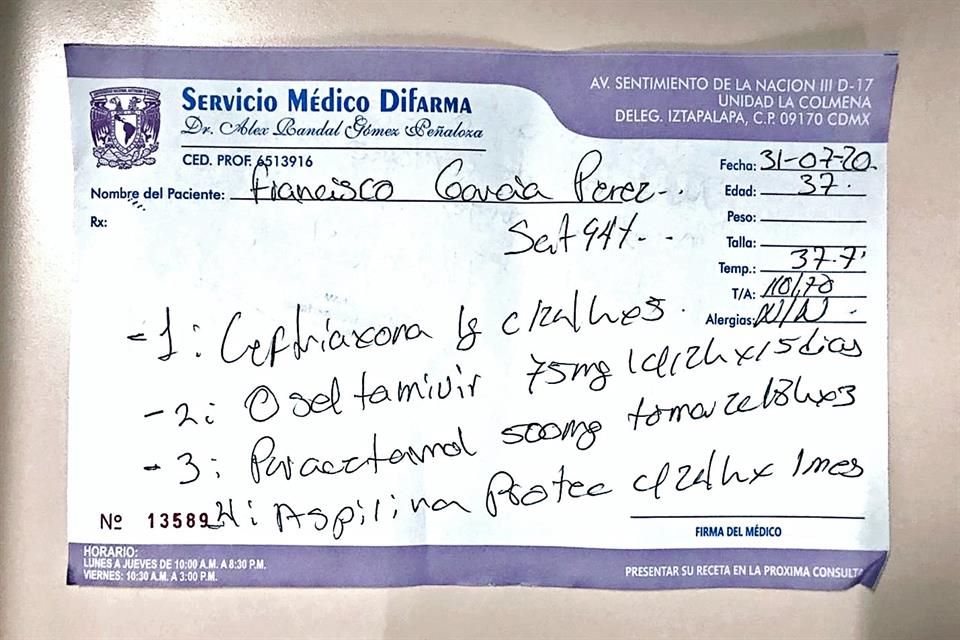 SERVICIO MÉDICO DIFARMA
Dr. Alex Randal Gómez Peñaloza
CED. PROF. 6513916
AV. SENTIMIENTO DE LA NACION III D-17
UNIDAD LA COLMENA
DELEG. IZTAPALAPA, C.P. 09170 CDMX
Fecha: 31-07-20.
Nombre del Paciente: Francisco Garcia Perez
Edad: 37.
Rx:
Sat 94%
Peso:
Talla:
Temp.: 37.7
T/A: 110/70
Alergias:
-1: Ceftriaxona 1g c/24hx3.
-2: Oseltamivir 75mg 1c/12hx/5dias
-3: Paracetamol 500mg tomar 2c/8hx3
4: Aspilina Protec c/24hx 1mes
Nº 13589
FIRMA DEL MÉDICO
HORARIO:
LUNES A JUEVES DE 10:00 A.M. A 8:30 P.M.
VIERNES: 10:30 A.M. A 3:00 P.M.
PRESENTAR SU RECETA EN LA PROXIMA CONSULTA